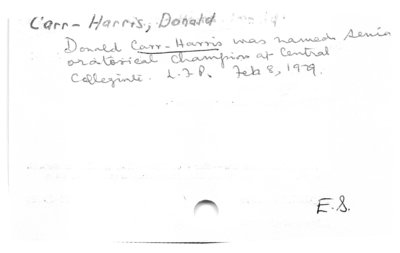 Carr-Harris, Donald
Donald Carr-Harris was named Senior
oratorical Champion at Central
Collegiate. L.F.P. Feb 8, 1929.
E.S.